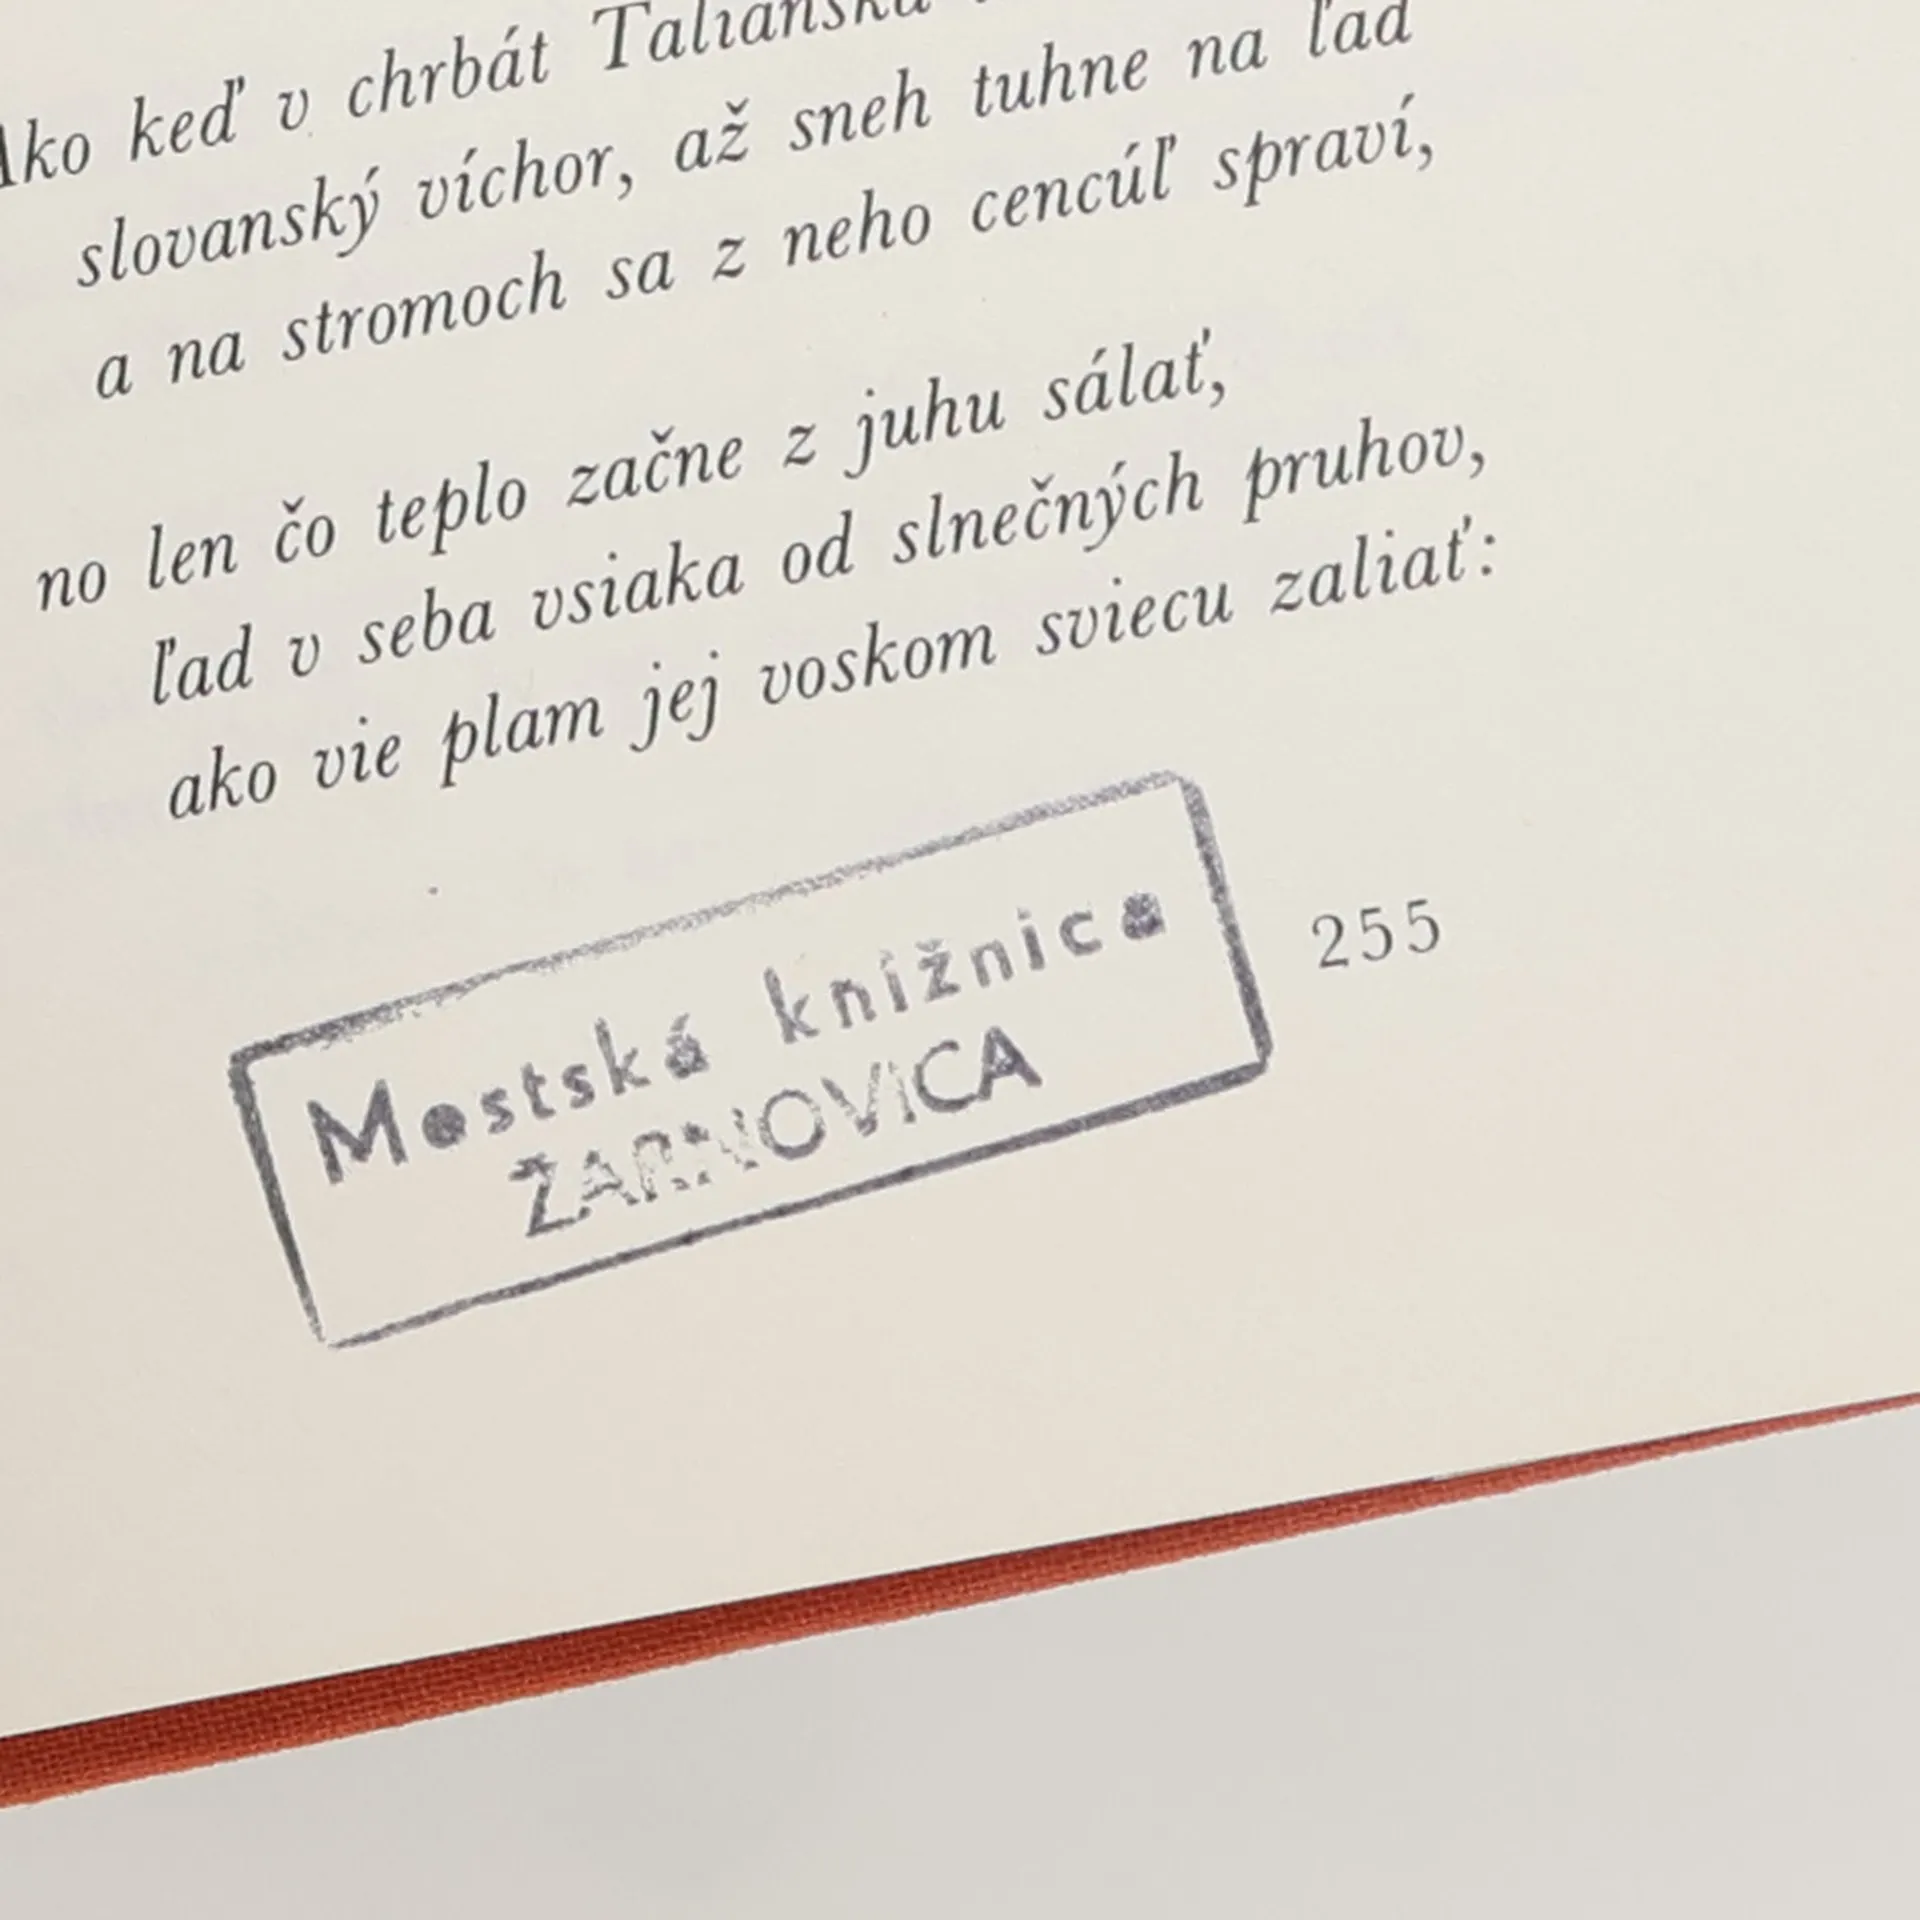 Ako keď v chrbát Talianska
slovanský víchor, až sneh tuhne na ľad
a na stromoch sa z neho cencúľ spraví,
no len čo teplo začne z juhu sálať,
ľad v seba vsiaka od slnečných pruhov,
ako vie plam jej voskom sviecu zaliať:
255
Mestská knižnica
ŽARNOVICA